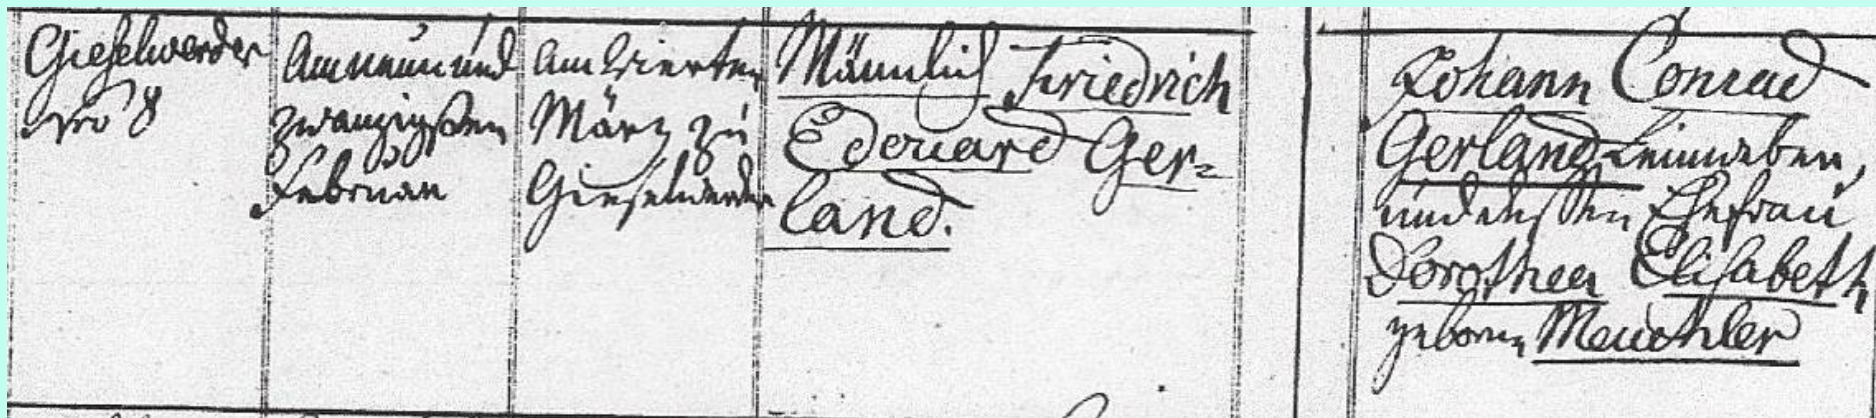 Gieselwerder
Nro 8
Am neun und
zwanzigsten
Februar
Am Vierten
März zu
Gieselwerder
Männlich Friedrich
Edouard Ger=
land.
Johann Conrad
Gerland Leinweber,
und dessen Ehefrau
Dorothea Elisabeth
geborne Meuchler